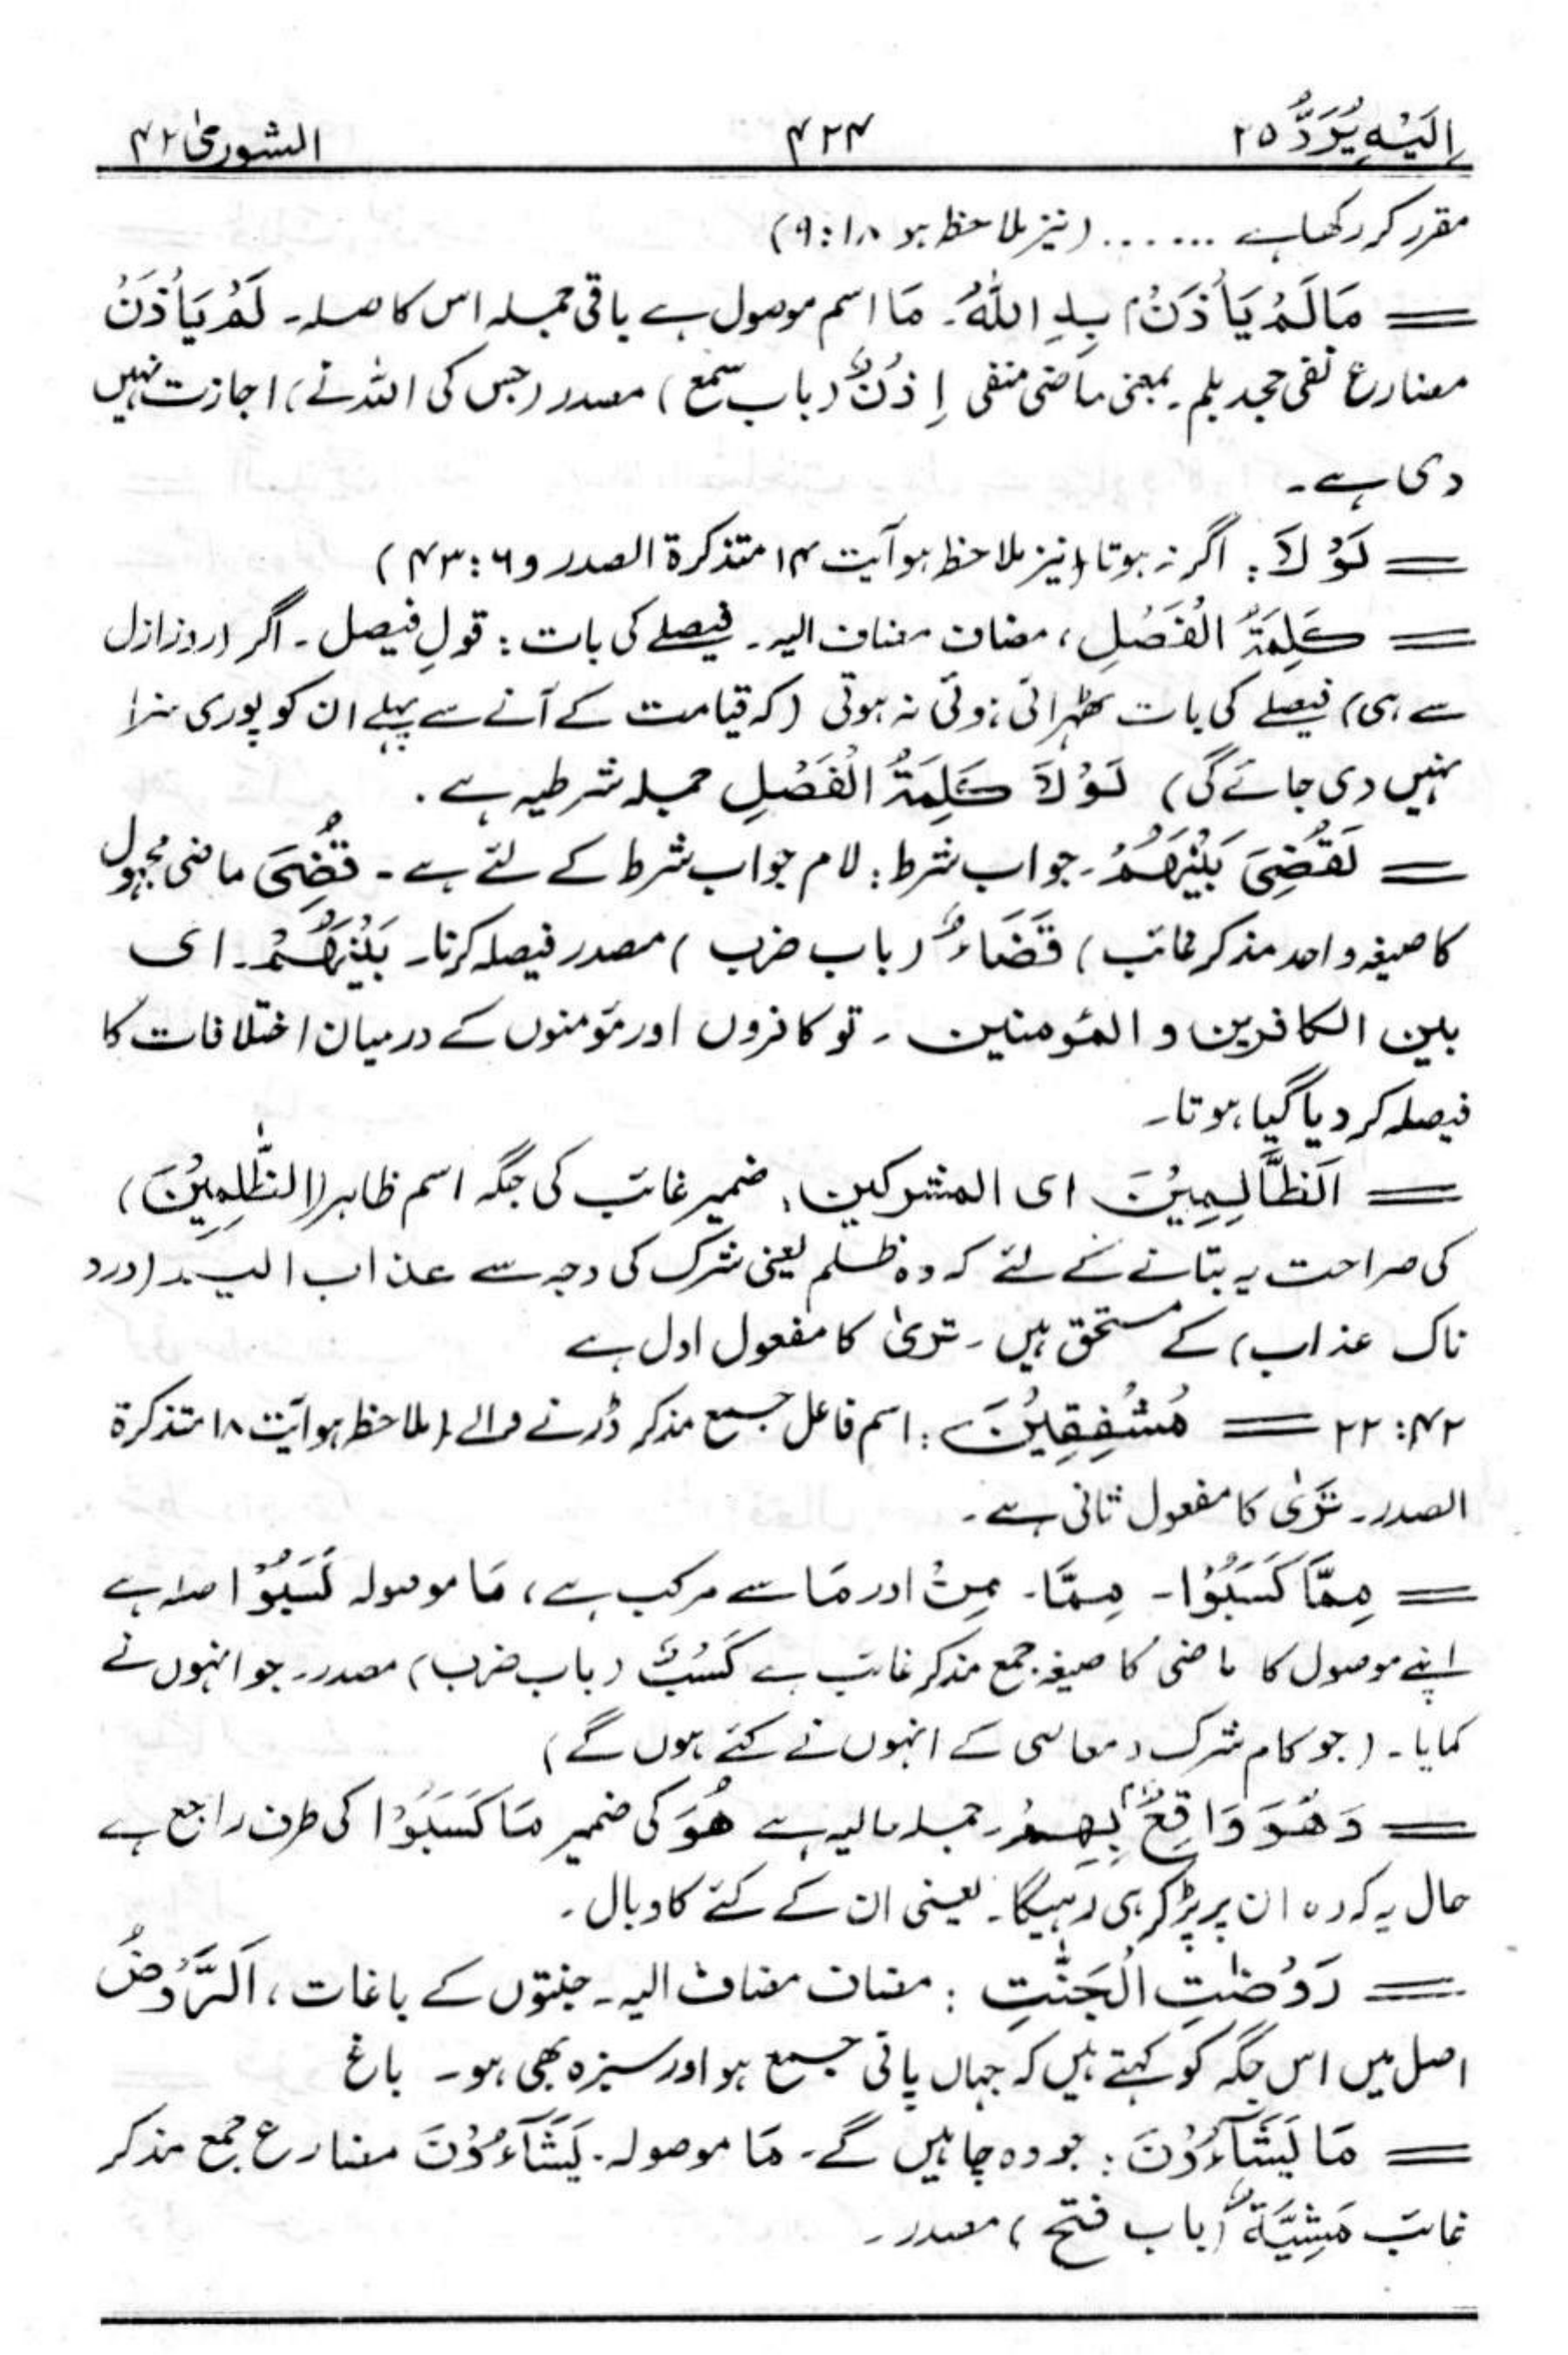 اِلَیْہِ یُرَدُّ ۲۵ ۴۲۴ الشوریٰ ۴۲
مقرر کر رکھا ہے ....... (نیز ملاحظ ہو ۹:۱۸)
= مَا لَمْ یَأْذَنْۢ بِہِ اللّٰہُ۔ مَا اسم موصول ہے باقی جملہ اس کا صلہ۔ لَمْ یَأْذَنْ
مضارع نفی جحد بلم۔ بمعنی ماضی منفی اِذْنٌ (باب سمع) مصدر (جس کی اللہ نے) اجازت نہیں
دی ہے۔
= لَوْلَا: اگر نہ ہوتا (نیز ملاحظ ہو آیت ۱۴ متذکرۃ الصدر و ۶: ۴۳)
= کَلِمَۃُ الْفَصْلِ، مضاف مضاف الیہ۔ فیصلے کی بات: قولِ فیصل۔ اگر (روز ازل
سے ہی) فیصلے کی بات ٹھہرائی ہوئی نہ ہوتی (کہ قیامت کے آنے سے پہلے ان کو پوری سزا
نہیں دی جائے گی) لَوْلَا کَلِمَۃُ الْفَصْلِ جملہ شرطیہ ہے۔
= لَقُضِیَ بَیْنَہُمْ۔ جواب شرط: لام جواب شرط کے لئے ہے۔ قُضِیَ ماضی مجہول
کا صیغہ واحد مذکر غائب) قَضَاءٌ (باب ضرب) مصدر فیصلہ کرنا۔ بَیْنَہُمْ۔ ای
بین الکافرین و المؤمنین۔ تو کافروں اور مؤمنوں کے درمیان اختلافات کا
فیصلہ کر دیا گیا ہوتا۔
= اَلظَّالِمِیْنَ ای المشرکین، ضمیر غائب کی جگہ اسم ظاہر (الظّٰلِمِیْنَ)
کی صراحت یہ بتانے کے لئے کہ وہ ظلم یعنی شرک کی وجہ سے عذاب الیم (درد
ناک عذاب) کے مستحق ہیں۔ تریٰ کا مفعول اول ہے
۴۲: ۲۲ = مُشْفِقِیْنَ: اسم فاعل جمع مذکر ڈرنے والے (ملاحظ ہو آیت ۱۸ متذکرۃ
الصدر۔ تَرٰی کا مفعول ثانی ہے۔
= مِمَّا کَسَبُوْا۔ مِمَّا۔ مِنْ اور مَا سے مرکب ہے، مَا موصولہ کَسَبُوْا صلہ ہے
اپنے موصول کا ماضی کا صیغہ جمع مذکر غائب ہے کَسْبٌ (باب ضرب) مصدر۔ جو انہوں نے
کمایا۔ (جو کام شرک و معاصی کے انہوں نے کئے ہوں گے)
= وَھُوَ وَاقِعٌۢ بِہِمْ۔ جملہ حالیہ ہے ھُوَ کی ضمیر مَا کَسَبُوْا کی طرف راجع ہے
حال یہ کہ وہ ان پر پڑ کر ہی رہیگا۔ یعنی ان کے کئے کا وبال۔
= رَوْضٰتِ الْجَنّٰتِ: مضاف مضاف الیہ۔ جنتوں کے باغات، اَلرَّوْضُ
اصل میں اس جگہ کو کہتے ہیں کہ جہاں پانی جمع ہو اور سبزہ بھی ہو۔ باغ
= مَا یَشَآءُوْنَ: جو وہ چاہیں گے۔ مَا موصولہ۔ یَشَآءُوْنَ مضارع جمع مذکر
غائب مَشِیَّۃٌ (باب فتح) مصدر۔